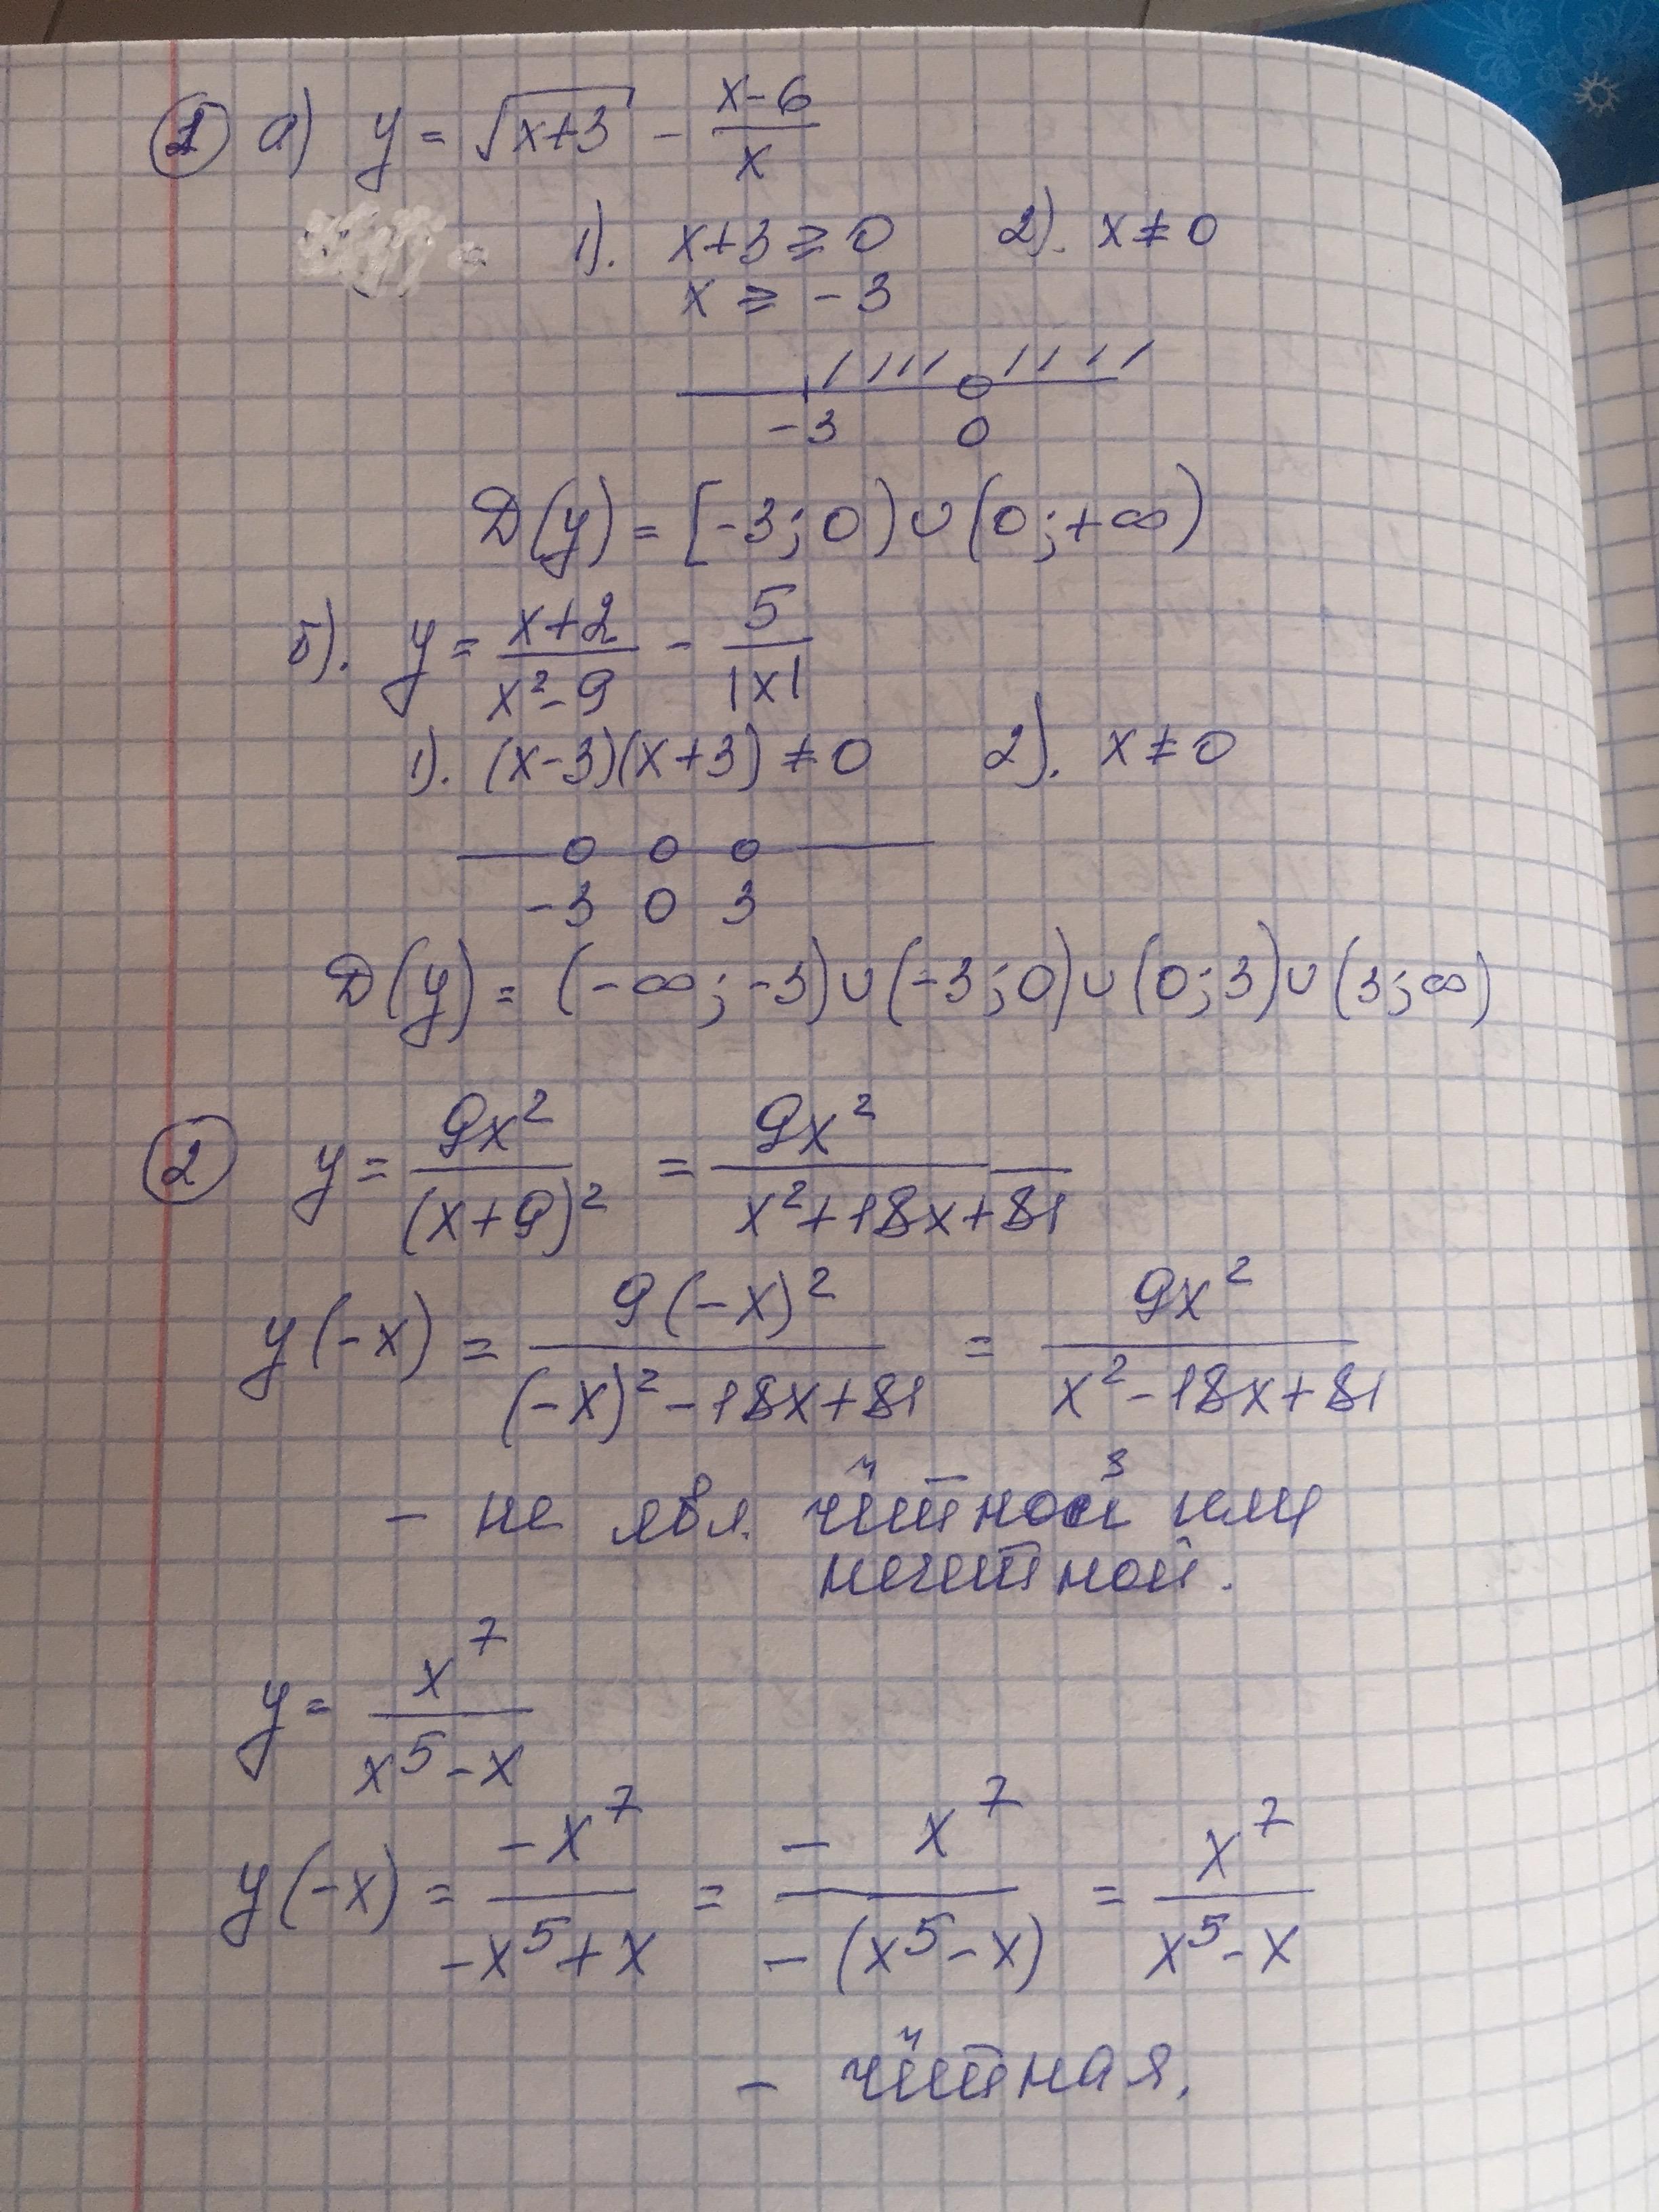 1 а) y = √(x+3) - (x-6)/x
1). x+3 ≥ 0 2). x ≠ 0
x ≥ -3
-3 0
D(y) = [-3; 0) ∪ (0; +∞)
б). y = (x+2)/(x²-9) - 5/|x|
1). (x-3)(x+3) ≠ 0 2). x ≠ 0
-3 0 3
D(y) = (-∞; -3) ∪ (-3; 0) ∪ (0; 3) ∪ (3; ∞)
2 y = 9x²/(x+9)² = 9x²/(x²+18x+81)
y(-x) = 9(-x)²/((-x)²-18x+81) = 9x²/(x²-18x+81)
- не явл. чётной или
нечетной.
y = x⁷/(x⁵-x)
y(-x) = -x⁷/(-x⁵+x) = -x⁷/(-(x⁵-x)) = x⁷/(x⁵-x)
- чётная.